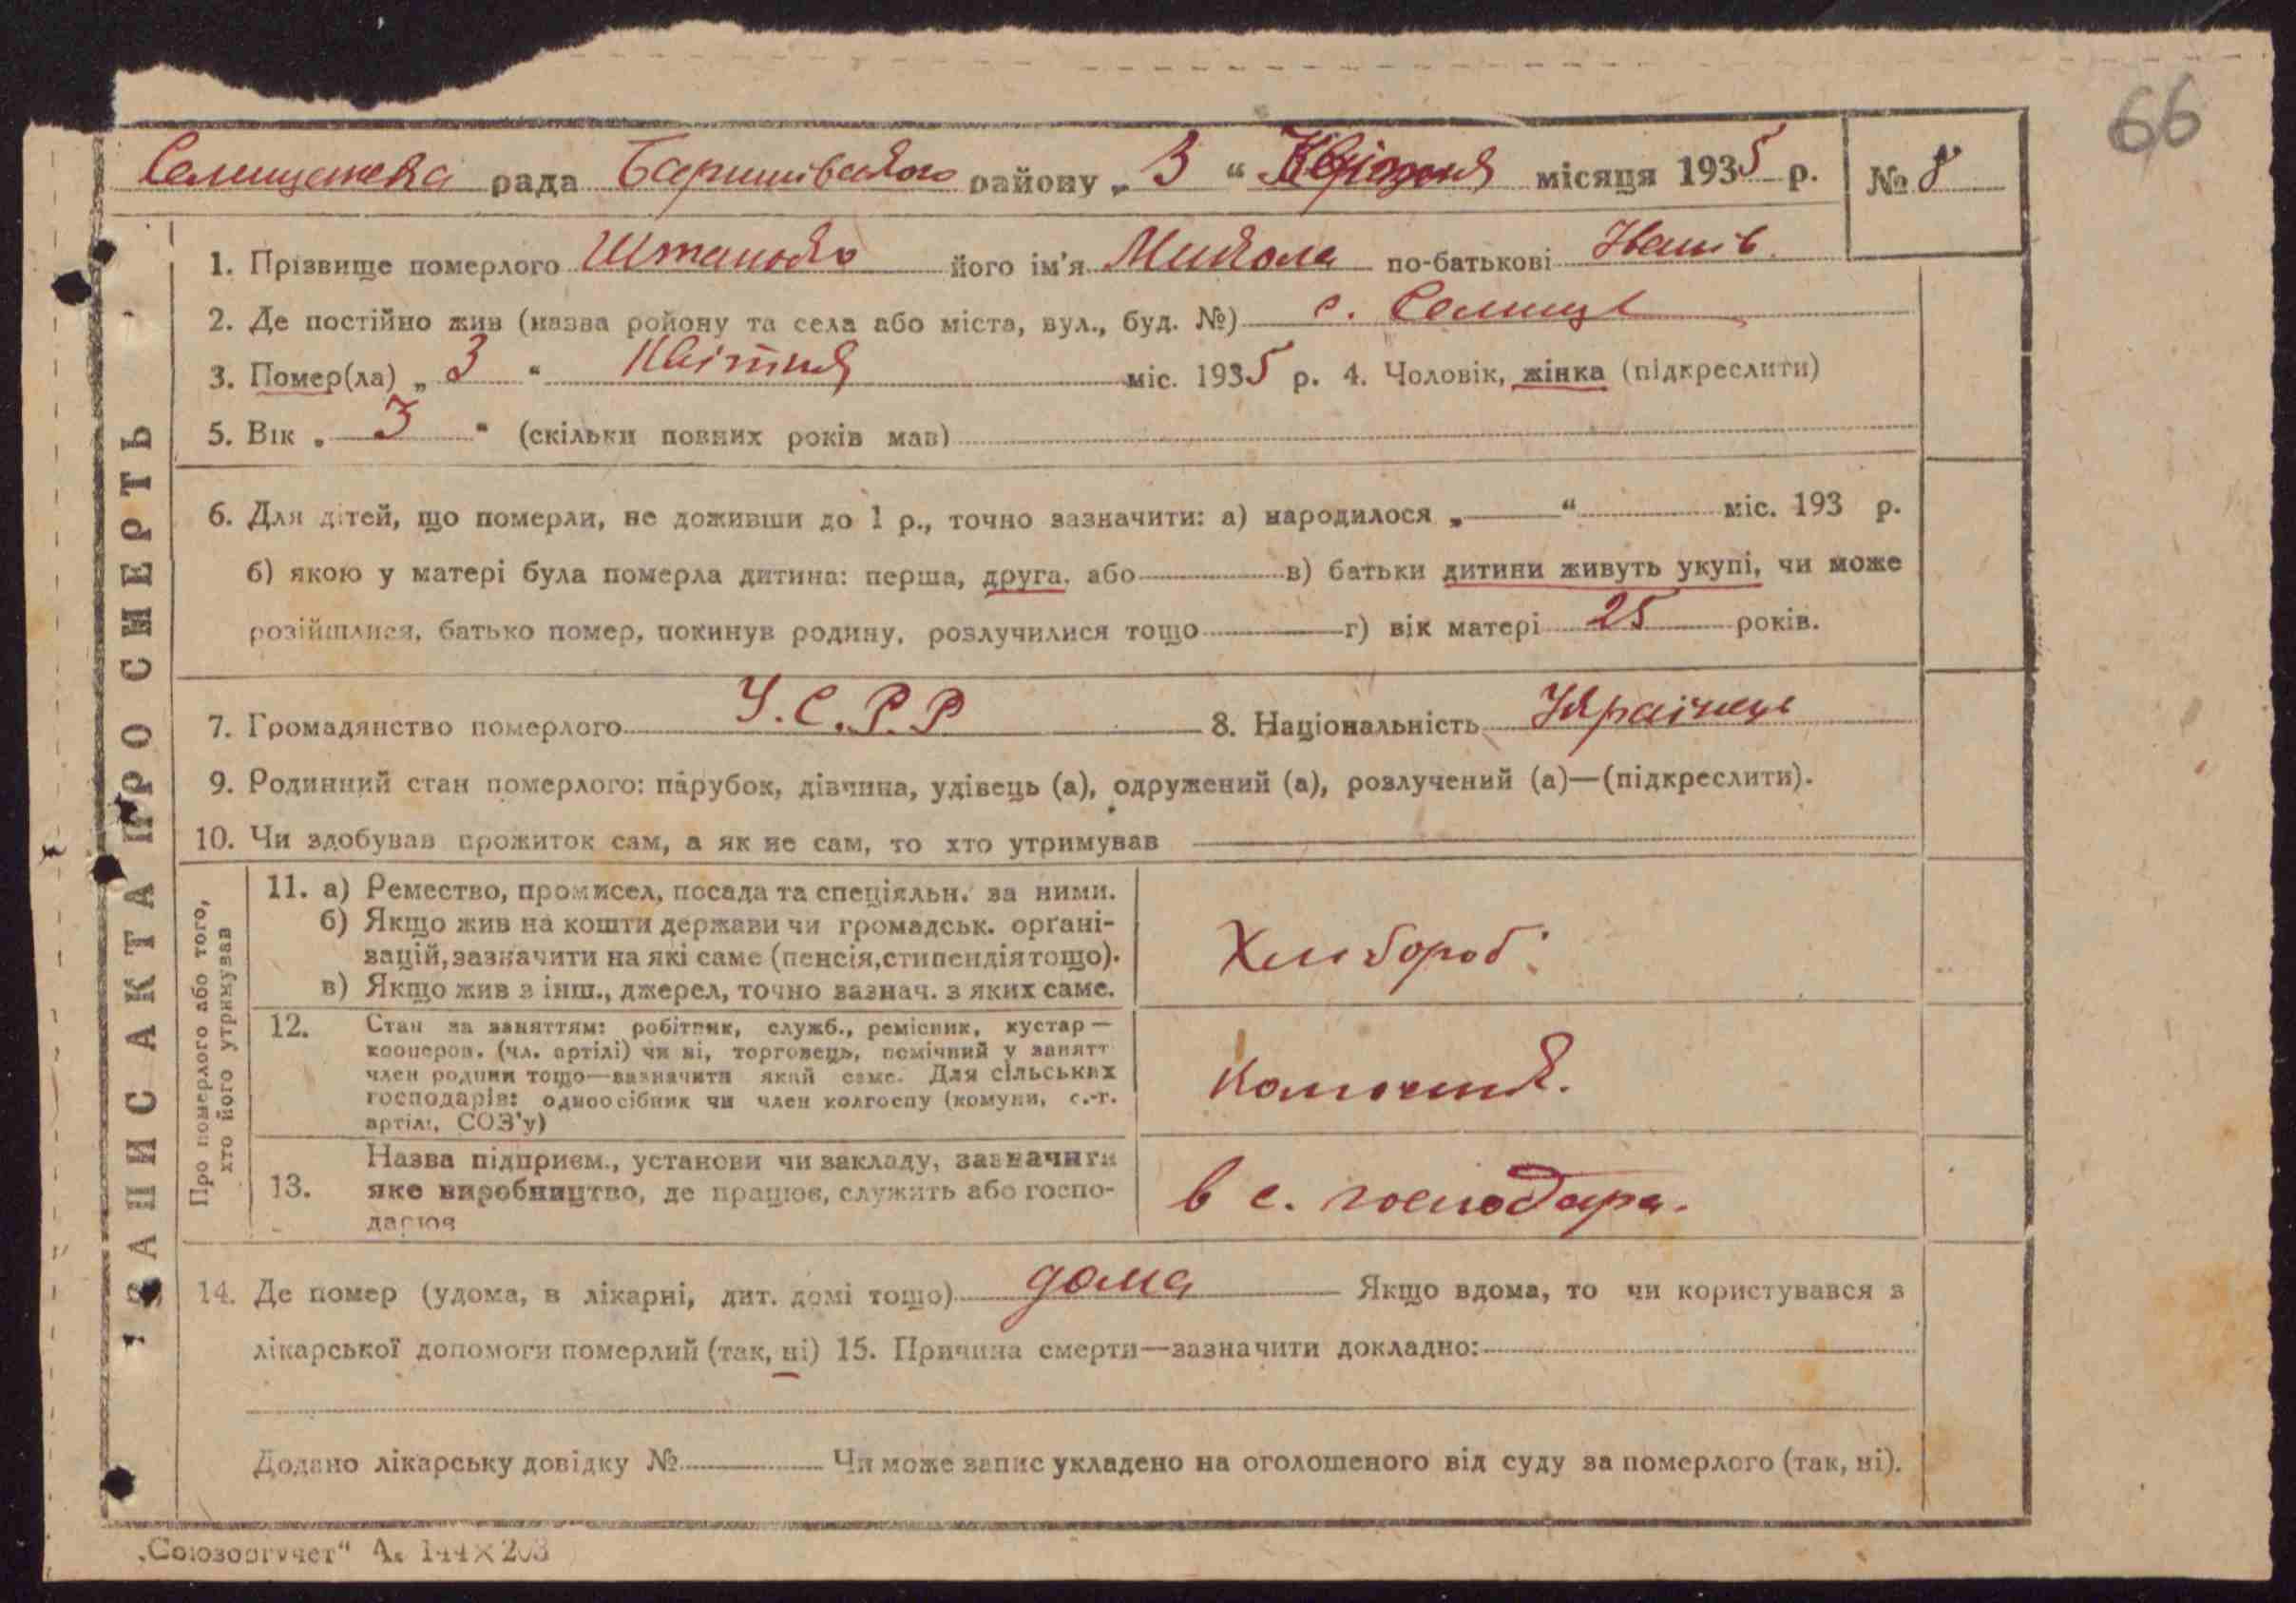 66
Селищанська рада Баришівського району „ 3 “ Квітня місяця 1935 р. № 8
1. Прізвище померлого Штанько його ім'я Микола по-батькові Іванів.
2. Де постійно жив (назва району та села або міста, вул., буд. №) с. Селище
3. Помер(ла) „ 3 “ Квітня міс. 1935 р. 4. Чоловік, жінка (підкреслити)
5. Вік „ 3 “ (скільки повних років мав)
6. Для дітей, що померли, не доживши до 1 р., точно зазначити: а) народилося „ — “ міс. 193 р.
б) якою у матері була померла дитина: перша, друга, або — в) батьки дитини живуть укупі, чи може
розійшлися, батько помер, покинув родину, розлучилися тощо — г) вік матері 25 років.
7. Громадянство померлого У.С.Р.Р 8. Національність Українець
9. Родинний стан померлого: парубок, дівчина, удівець (а), одружений (а), розлучений (а)—(підкреслити).
10. Чи здобував прожиток сам, а як не сам, то хто утримував —
Про померлого або того,
хто його утримував
11. а) Ремество, промисел, посада та спеціяльн. за ними.
б) Якщо жив на кошти держави чи громадськ. орґані-
зацій, зазначити на які саме (пенсія, стипендія тощо).
в) Якщо жив з інш., джерел, точно зазнач. з яких саме.
Хлибороб
12. Стан за заняттям: робітник, служб., ремісник, кустар —
кооперов. (чл. артілі) чи ні, торговець, помічний у занятт
член родини тощо—зазначити який саме. Для сільських
господарів: одноосібник чи член колгоспу (комуни, с.-г.
артілі, СОЗ'у)
13. Назва підприєм., установи чи закладу, зазначити
яке виробництво, де працює, служить або госпо-
дарює
в с. господара.
14. Де помер (удома, в лікарні, дит. домі тощо) дома Якщо вдома, то чи користувався з
лікарської допомоги померлий (так, ні) 15. Причина смерти—зазначити докладно:
Додано лікарську довідку № Чи може запис укладено на оголошеного від суду за померлого (так, ні).
ЗАПИС АКТА ПРО СМЕРТЬ
„Союзоргучет“ А. 144×203